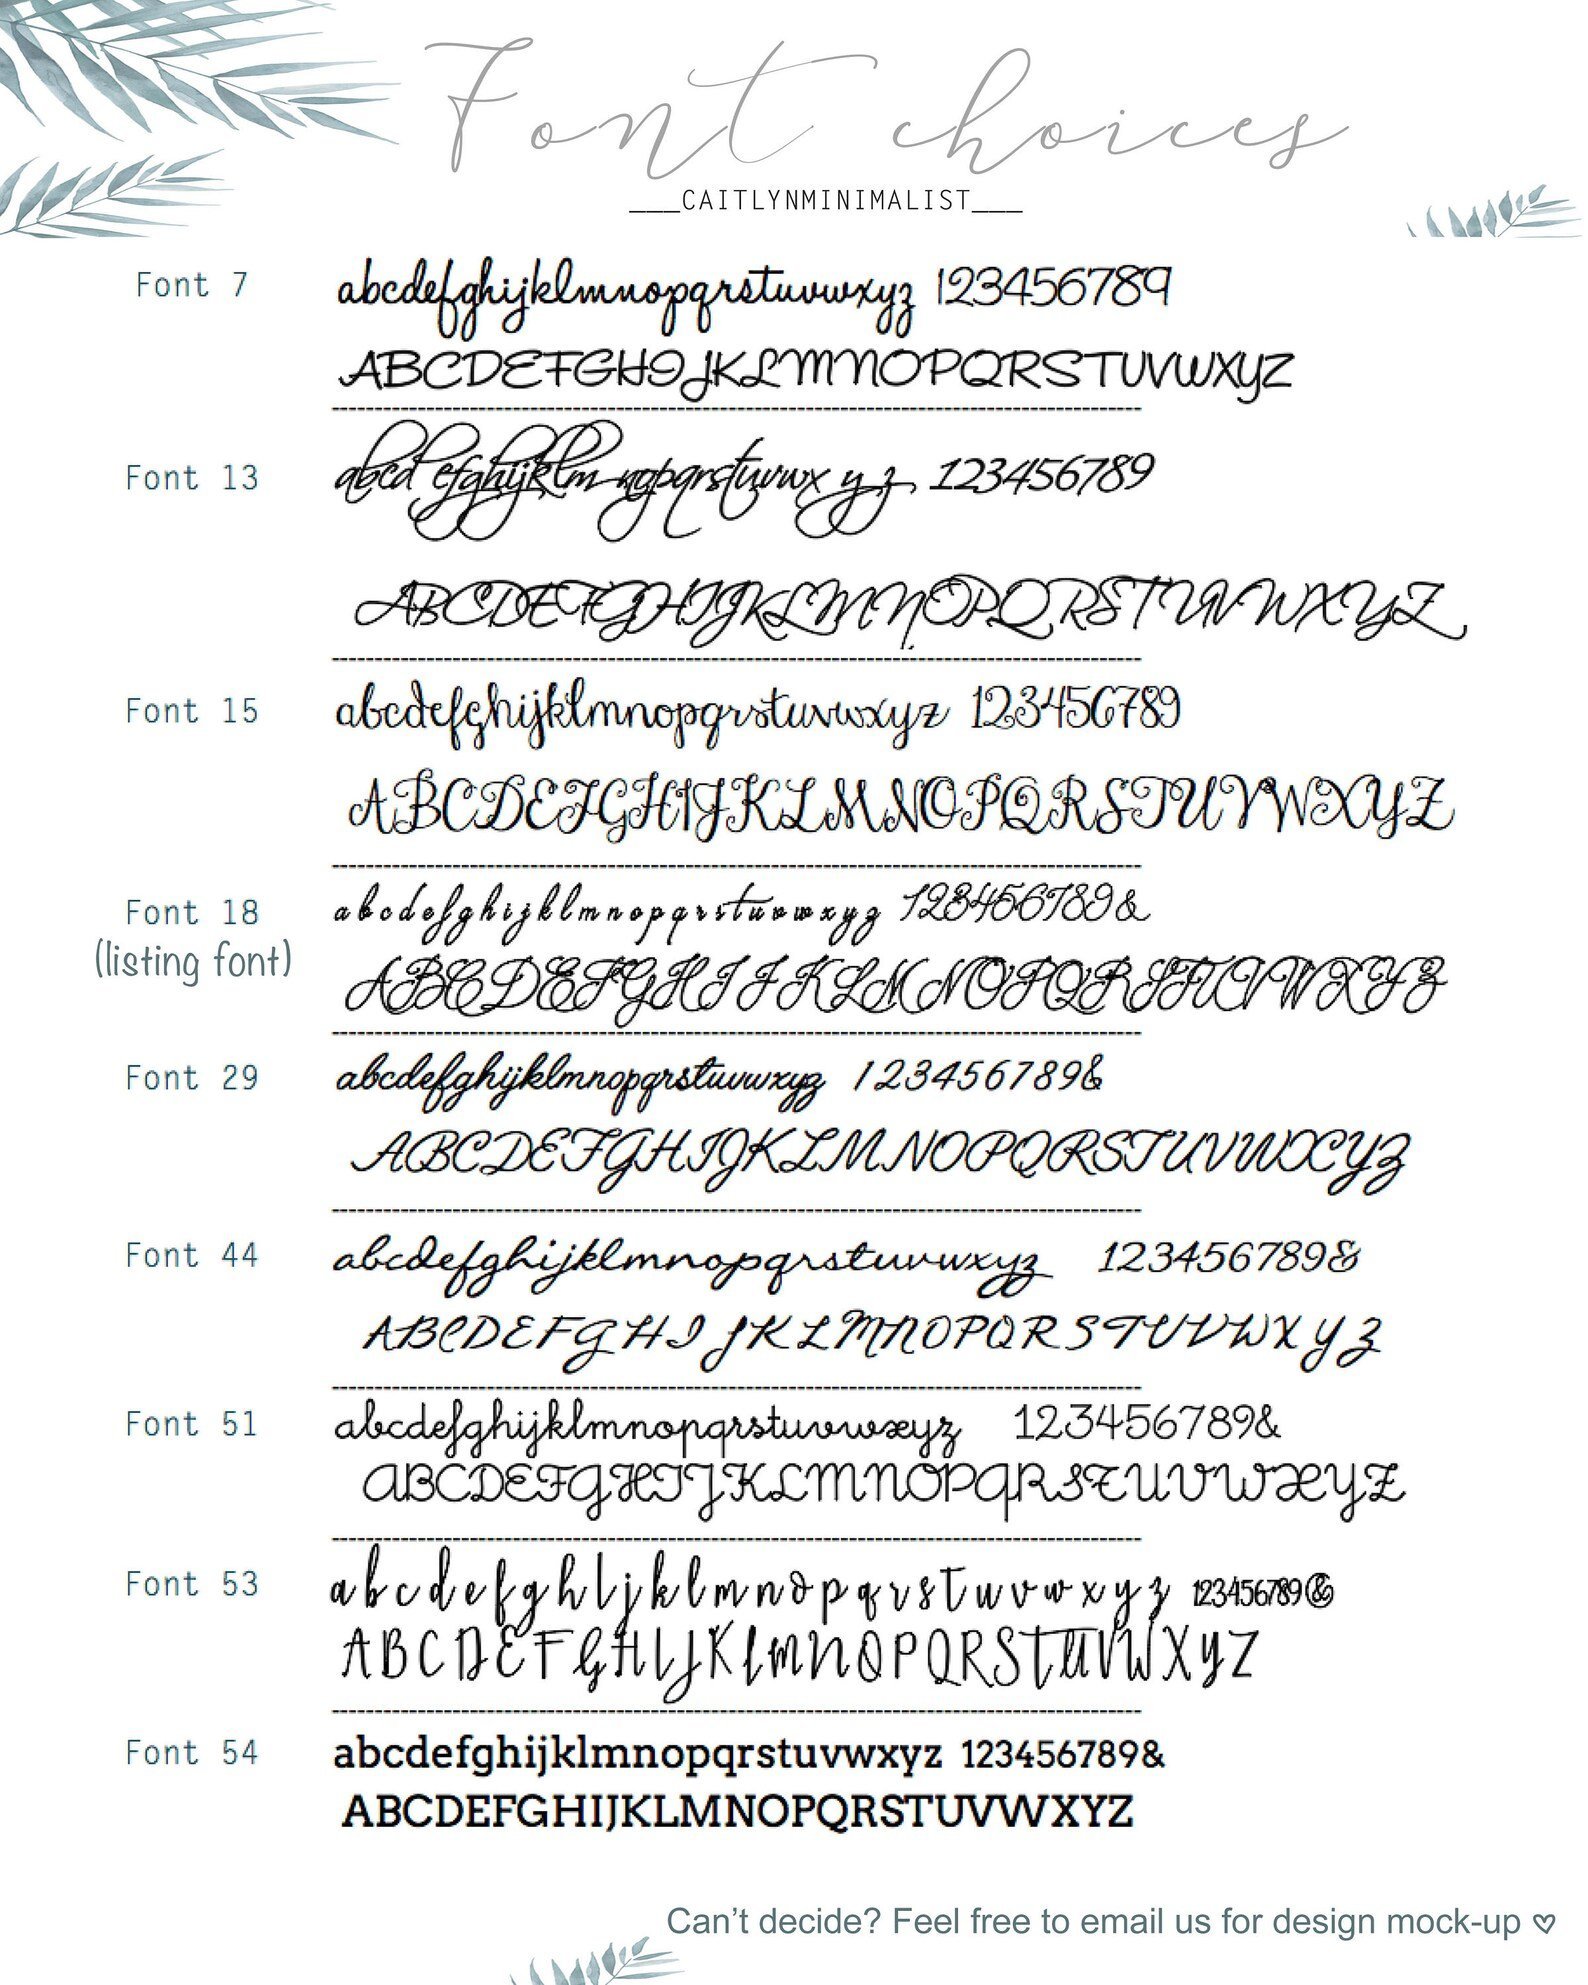 Font choices
___CAITLYNMINIMALIST___
Font 7 abcdefghijklmnopqrstuvwxyz 123456789
ABCDEFGHIJKLMNOPQRSTUVWXYZ
Font 13 abcdefghijklmnopqrstuvwxyz 123456789
ABCDEFGHIJKLMNOPQRSTUVWXYZ
Font 15 abcdefghijklmnopqrstuvwxyz 123456789
ABCDEFGHIJKLMNOPQRSTUVWXYZ
Font 18 abcdefghijklmnopqrstuvwxyz 123456789&
(listing font) ABCDEFGHIJKLMNOPQRSTUVWXYZ
Font 29 abcdefghijklmnopqrstuvwxyz 123456789&
ABCDEFGHIJKLMNOPQRSTUVWXYZ
Font 44 abcdefghijklmnopqrstuvwxyz 123456789&
ABCDEFGHIJKLMNOPQRSTUVWXYZ
Font 51 abcdefghijklmnopqrstuvwxyz 123456789&
ABCDEFGHIJKLMNOPQRSTUVWXYZ
Font 53 abcdefghijklmnopqrstuvwxyz 123456789&
ABCDEFGHIJKLMNOPQRSTUVWXYZ
Font 54 abcdefghijklmnopqrstuvwxyz 123456789&
ABCDEFGHIJKLMNOPQRSTUVWXYZ
Can't decide? Feel free to email us for design mock-up ♡